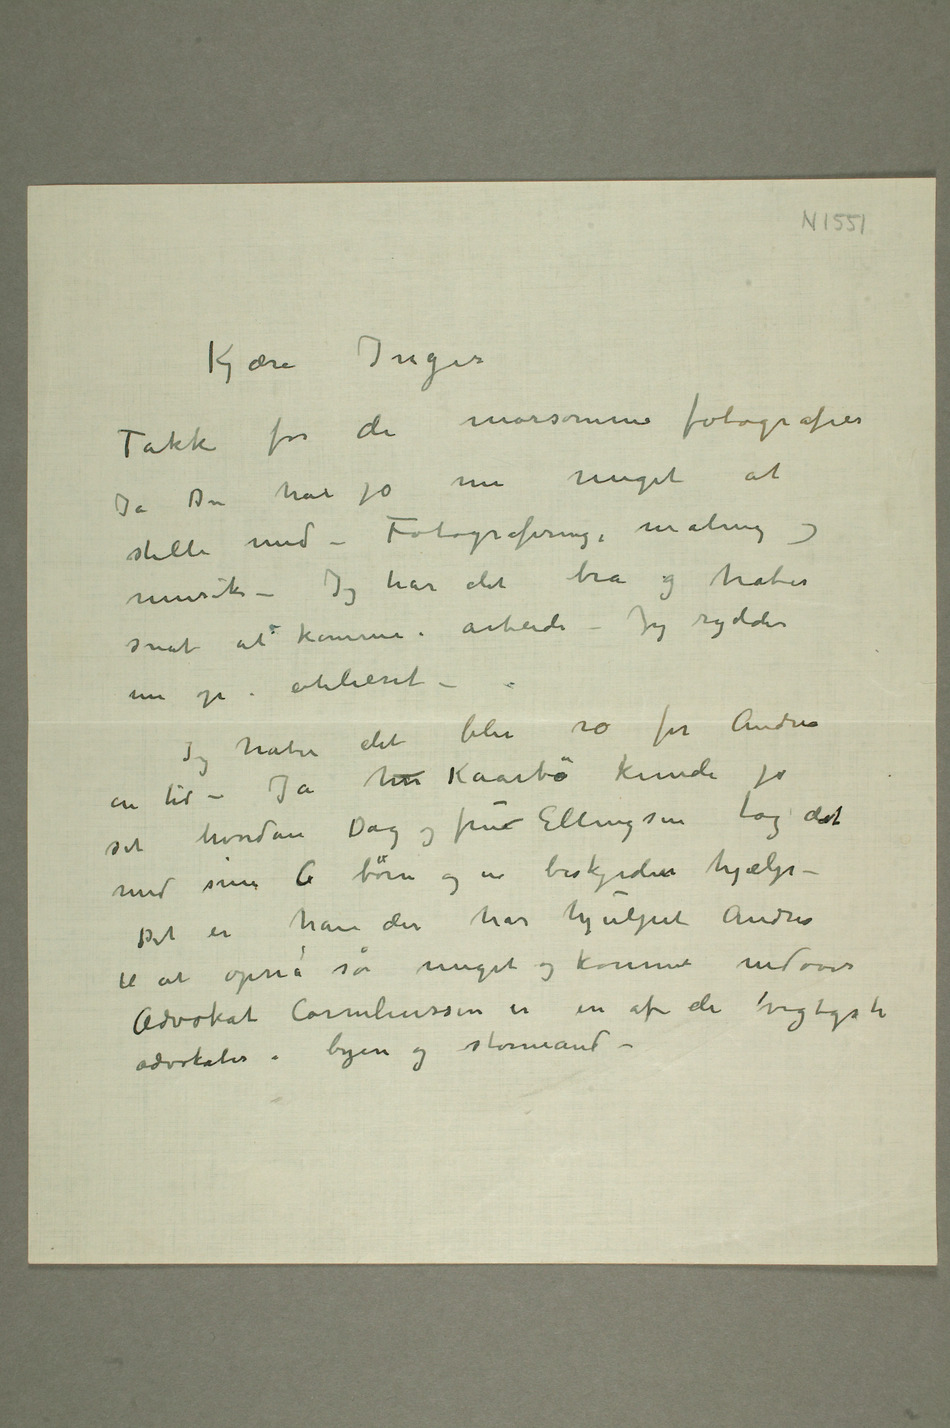 N 1551
Kjære Inger
Takk for de morsomme fotografier
Ja Du har jo nu meget at
stelle med – Fotografering, maling og
musik – Jeg har det bra og håber
snat at komme i arbeide – Jeg rydder
nu op i atelieret –
Jeg håber det blir ro for Andrea
en tid – Ja Kaarbö kunde jo
set hvordan Dag og frue Ellingsen tog det
med sine 6 börn og en beskjeden hjælp –
Det er han der har hjulpet Andrea
til at opnå så meget og komme nedover
Advokat Corneliussen er en af de vigtigste
advokater i byen og stormand –